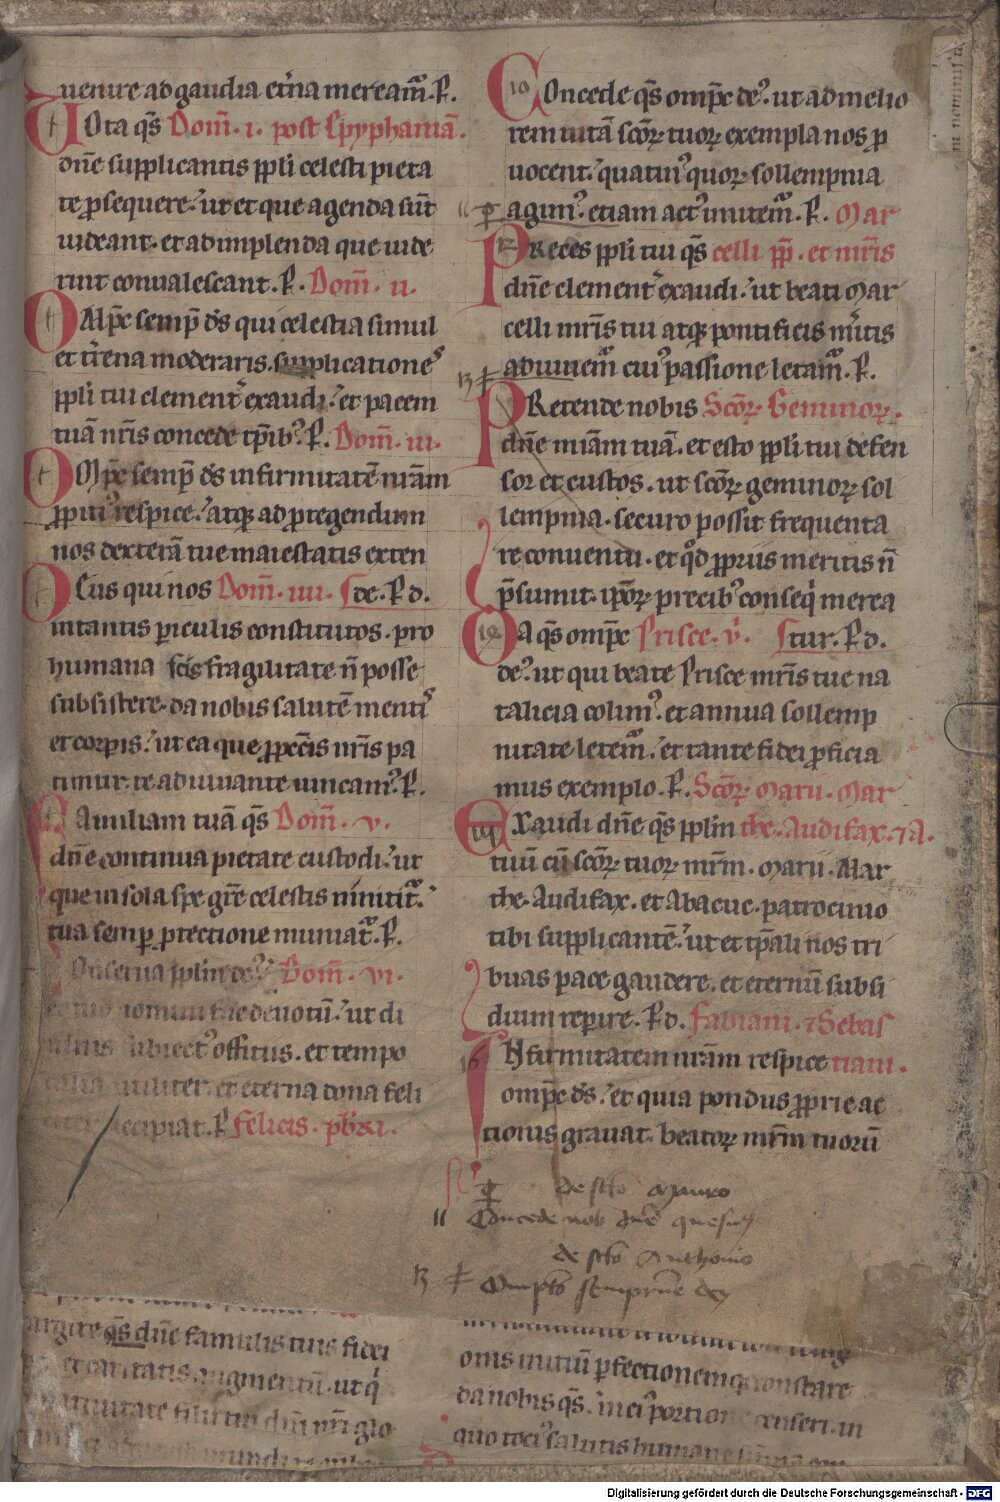 uenire ad gaudia et̓na meream̃. ꝶ.
VOta q̃s Dom̃. i. post Epyphaniã.
dñe supplicantis ppl̓i celesti pieta
te ꝓsequere. ut et que agenda sũt
uideant. et ad implenda que uide
rint conualescant. ꝶ. Dom̃. ii.
Omp̃c semp̃ d̃s qui celestia simul
et t̓rena moderaris. supplicationeˢ
ppl̓i tui clement̓ exaudi. et pacem
tuã nr̃is concede tp̃ibꝰ. ꝶ. Dom̃. iii.
OMp̃c semp̃ d̃s infirmitatẽ nrãm
ꝓpitiꝰ respice. atqꝫ ad ꝓtegendum
nos dexterã tue maiestatis exten
DEus qui nos Dom̃. iiii. de. ꝶ d.
in tantis ꝑiculis constitutos. pro
humana scis fragilitate ñ posse
subsistere. da nobis salutẽ mentiˢ
et corꝑis. ut ea que ꝓ pcc̃is nr̃is pa
timur. te adiuuante uincamꝰ. ꝶ.
FAmiliam tuã q̃s Dom̃. v.
dñe continua pietate custodi. ut
que in sola spe gr̃e celestis nititᷣ.
tua semꝑ ꝓtectione muniatᷣ. ꝶ.
COnserua ppl̓m Dom̃. vi.
deuotũ. ut di
uinis subiectꝰ offitiis. et tempo
ralia uiriliter. et eterna dona feli
citer accipiat. ꝶ Felicis. pb̓ri.
argire q̃s dñe famulis tuis fidei
et caritatis augmentũ. ut q̓
natiuitate filii tui dñi nr̃i glo
COncede q̃s omp̃c deꝰ. ut ad melio
rem uitã scõꝝ tuoꝝ exempla nos ꝓ
uocent. quatinꝰ quoꝝ sollempnia
agimꝰ. etiam actꝰ imitem̃. ꝶ. Mar
PReces ppl̓i tui q̃s celli pp̃. et mr̃is
dñe clement̓ exaudi. ut beati Mar
celli mr̃is tui atqꝫ pontificis m̓itis
adiuuem̃ cuiꝰ passione letam̃. ꝶ.
PRetende nobis Scõꝝ Geminoꝝ.
dñe miãm tuã. et esto ppl̓i tui defen
sor et custos. ut scõꝝ geminoꝝ sol
lempnia. securo possit frequenta
re conuentu. et qd̓ ꝓpriis meritis ñ
p̃sumit. ip̃oꝝ precibꝰ conseq̓ merea
DA q̃s omp̃c Prisce. v̓. tur. ꝶ d.
deꝰ. ut qui beate Prisce mr̃is tue na
talicia colimꝰ. et annua sollemp
nitate letem̃. et tante fidei ꝓficia
mus exemplo. ꝶ. Scõꝝ Marii. Mar
EXaudi dñe q̃s ppl̓m the. Audifax. ⁊ A.
tuũ cũ scõꝝ tuoꝝ mr̃m. Marii. Mar
the. Audifax. et Abacuc. patrocinio
tibi supplicantẽ. ut et tp̃ali nos tri
buas pace gaudere. et eternũ subsi
dium reꝑire. ꝶ d. Fabiani. ⁊ Sebas
INfirmitatem nrãm respice tiani.
omp̃c d̃s. et quia pondus ꝓprie ac
tionis grauat. beatoꝝ mr̃m tuorũ
de sctõ Mauro
Concede nob dñe quesum̃
de sctõ Anthonio
Ompt̃s sempit̃ne de
onis initiũ ꝑfectionemqꝫ constare
da nobis q̃s. in eiꝰ portione censeri. in
quo tociꝰ salutis humane
Digitalisierung gefördert durch die Deutsche Forschungsgemeinschaft - DFG